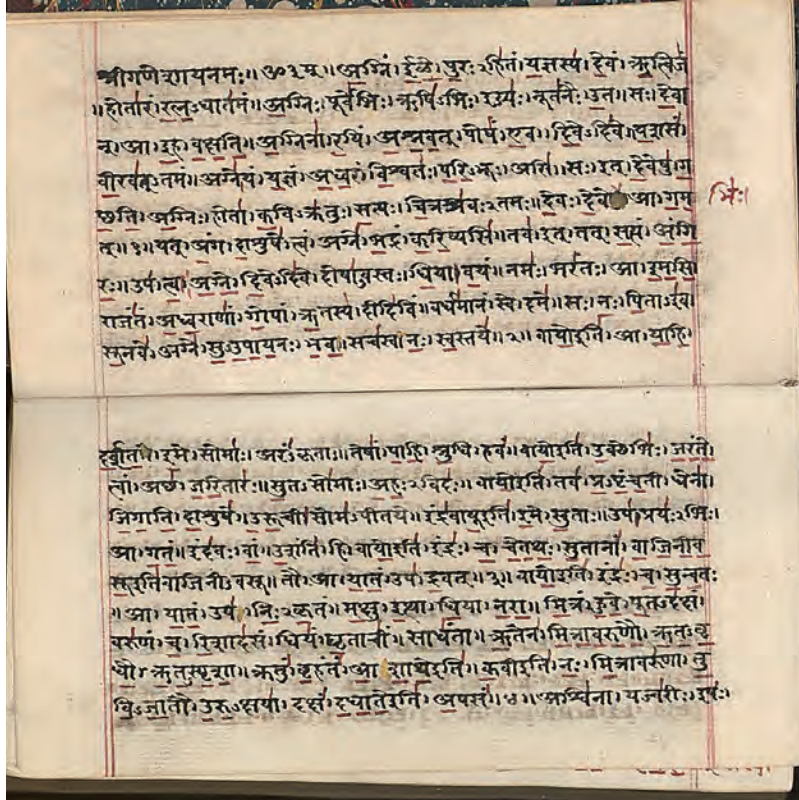 श्रीगणेशायनमः॥ॐ३म्॥अग्निं।ईळे।पुरःऽहितं।यज्ञस्य।देवं।ऋत्विजं
॥होतारं।रत्नऽधातमं॥अग्निः।पूर्वेभिः।ऋषिऽभिः।ईड्यः।नूतनैः।उत॥सः।देवा
न्।आ।इह।वक्षति॥अग्निना।रयिं।अश्नवत्।पोषं।एव।दिवेऽदिवे॥यशसं।
वीरवत्ऽतमं॥अग्ने।यं।यज्ञं।अध्वरं।विश्वतः।परिऽभूः।असि॥सः।इत्।देवेषु।ग
च्छति॥अग्निः।होता।कविऽक्रतुः।सत्यः।चित्रश्रवःऽतमः॥देवः।देवे आ।गम
भिः।
त्॥१॥यत्।अंग।दाशुषे।त्वं।अग्ने।भद्रं।करिष्यसि॥तव।इत्।तत्।सत्यं।अंगि
रः॥उप।त्वा।अग्ने।दिवेऽदिवे।दोषाऽवस्तः।धिया।वयं॥नमः।भरंतः।आ।इमसि॥
राजंतं।अध्वराणां।गोपां।ऋतस्य।दीदिविं॥वर्धमानं।स्वे।दमे॥सः।नः।पिताऽइव।
सूनवे।अग्ने।सुऽउपायनः।भव॥सचस्व।नः।स्वस्तये॥२॥वायोइति।आ।याहि।
दर्शत।इमे।सोमाः।अरंऽकृताः॥तेषां।पाहि।श्रुधि।हवं॥वायोइति।उक्थेभिः।जरंते।
त्वां।अच्छ।जरितारः॥सुतऽसोमाः।अहःऽविदः॥वायोइति।तव।प्रऽपृंचती।धेना।
जिगाति।दाशुषे॥उरूची।सोमऽपीतये॥इंद्रवायूइति।इमे।सुताः।उप।प्रयःऽभिः।
आ।गतं॥इंदवः।वां।उशंति।हि॥वायोइति।इंद्रः।च।चेतथः।सुतानां।वाजिनीव
सूइतिवाजिनीऽवसू॥तौ।आ।यातं।उप।द्रवत्॥३॥वायोइति।इंद्रः।च।सुन्वतः
॥आ।यातं।उप।निःऽकृतं॥मक्षु।इत्था।धिया।नरा॥मित्रं।हुवे।पूतऽदक्षं।
वरुणं।च।रिशादसं॥धियं।घृताचीं।साधंता॥ऋतेन।मित्रावरुणौ।ऋतऽवृ
धौ।ऋतऽस्पृशा॥क्रतुं।बृहंतं।आशाथेइति॥कवीइति।नः।मित्रावरुणा।तु
विऽजातौ।उरुऽक्षया॥दक्षं।दधातेइति।अपसं॥४॥अश्विना।यज्वरीः।इषः।